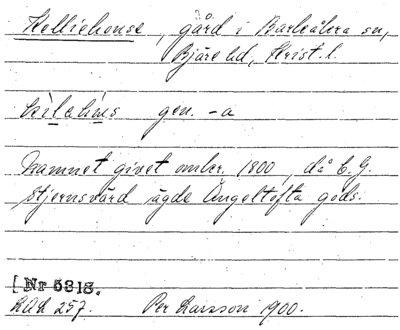 Kelliehouse, gård i Barkåkra sn,
Bjäre hd, Krist. l.
kìlahùs gen. -a
Namnet givet omkr. 1800, då C. G.
Stjernsvärd ägde Ängeltofta gods.
[Nr 5818.
LUA 257. Per Larsson 1900.